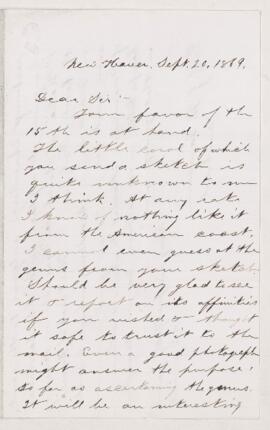 New Haven. Sept. 20, 1869.
Dear Sir:-
Your favor of the
15th is at hand.
The little coral of which
you send a sketch is
quite unknown to me
I think. At any rate
I know of nothing like it
from the American coast.
I cannot even guess at the
genus from your sketch.
Should be very glad to see
it & report on its affinities
if you wished & thought
it safe to trust it to the
mail. Even a good photograph
might answer the purpose
so far as ascertaining the genus.
It will be an interesting